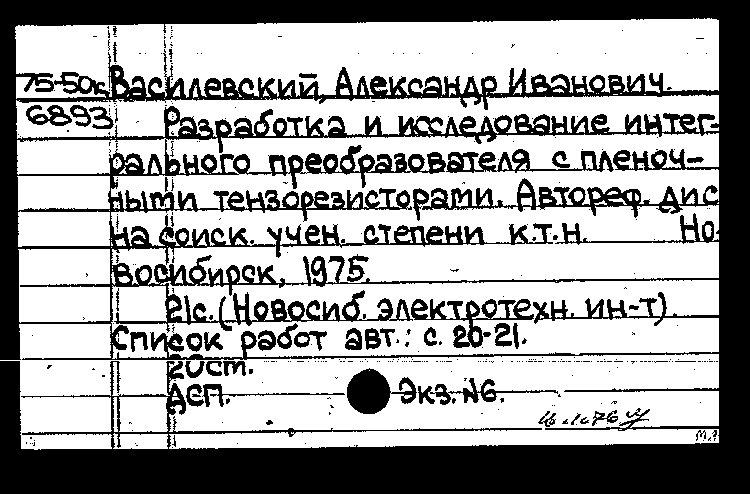 75-50к Василевский, Александр Иванович.
6893 Разработка и исследование интег-
рального преобразователя с пленоч-
ными тензорезисторами. Автореф. дис
на соиск. учен. степени к.т.н. Но-
восибирск, 1975.
21с. (Новосиб. электротехн. ин-т).
Список работ авт.: с. 20-21.
20ст.
ДСП. Экз. №6.